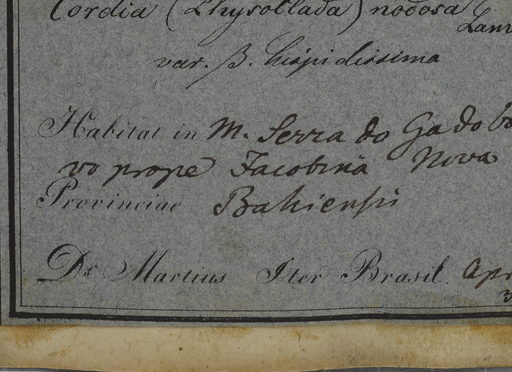 Cordia (Physoclada) nodosa Lam
var. β. hispidissima
Habitat in M. Serra do Gado bo
vo prope Jacobina Nova
Provinciae Bahiensi
Dr. Martius Iter Brasil. Apr